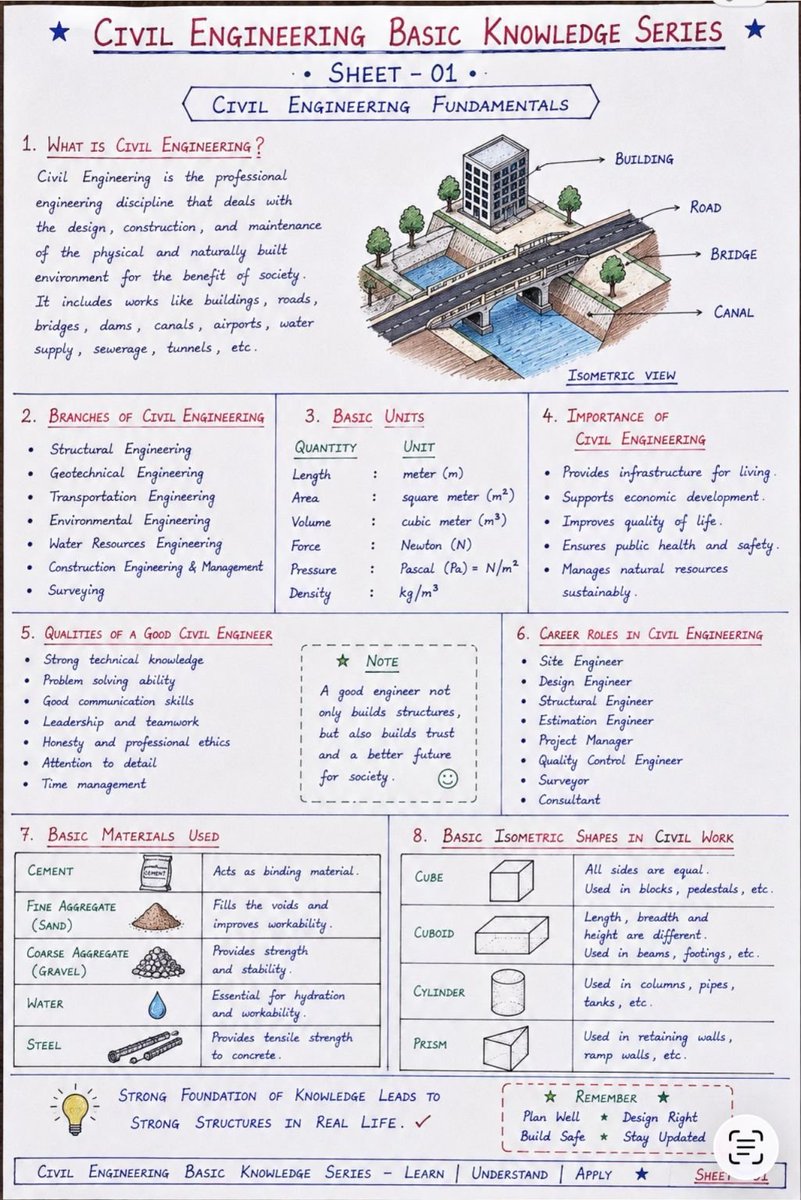 ★ CIVIL ENGINEERING BASIC KNOWLEDGE SERIES ★
• SHEET - 01 •
CIVIL ENGINEERING FUNDAMENTALS
1. WHAT IS CIVIL ENGINEERING?
Civil Engineering is the professional
engineering discipline that deals with
the design, construction, and maintenance
of the physical and naturally built
environment for the benefit of society.
It includes works like buildings, roads,
bridges, dams, canals, airports, water
supply, sewerage, tunnels, etc.
BUILDING
ROAD
BRIDGE
CANAL
ISOMETRIC VIEW
2. BRANCHES OF CIVIL ENGINEERING
• Structural Engineering
• Geotechnical Engineering
• Transportation Engineering
• Environmental Engineering
• Water Resources Engineering
• Construction Engineering & Management
• Surveying
3. BASIC UNITS
QUANTITY UNIT
Length : meter (m)
Area : square meter (m²)
Volume : cubic meter (m³)
Force : Newton (N)
Pressure : Pascal (Pa) = N/m²
Density : kg/m³
4. IMPORTANCE OF
CIVIL ENGINEERING
• Provides infrastructure for living.
• Supports economic development.
• Improves quality of life.
• Ensures public health and safety.
• Manages natural resources
sustainably.
5. QUALITIES OF A GOOD CIVIL ENGINEER
• Strong technical knowledge
• Problem solving ability
• Good communication skills
• Leadership and teamwork
• Honesty and professional ethics
• Attention to detail
• Time management
★ NOTE
A good engineer not
only builds structures,
but also builds trust
and a better future
for society. ☺
6. CAREER ROLES IN CIVIL ENGINEERING
• Site Engineer
• Design Engineer
• Structural Engineer
• Estimation Engineer
• Project Manager
• Quality Control Engineer
• Surveyor
• Consultant
7. BASIC MATERIALS USED
CEMENT
CEMENT
Acts as binding material.
FINE AGGREGATE
(SAND)
Fills the voids and
improves workability.
COARSE AGGREGATE
(GRAVEL)
Provides strength
and stability.
WATER
Essential for hydration
and workability.
STEEL
Provides tensile strength
to concrete.
8. BASIC ISOMETRIC SHAPES IN CIVIL WORK
CUBE
All sides are equal.
Used in blocks, pedestals, etc.
CUBOID
Length, breadth and
height are different.
Used in beams, footings, etc.
CYLINDER
Used in columns, pipes,
tanks, etc.
PRISM
Used in retaining walls,
ramp walls, etc.
STRONG FOUNDATION OF KNOWLEDGE LEADS TO
STRONG STRUCTURES IN REAL LIFE. ✓
★ REMEMBER ★
Plan Well ★ Design Right
Build Safe ★ Stay Updated
CIVIL ENGINEERING BASIC KNOWLEDGE SERIES - LEARN | UNDERSTAND | APPLY ★